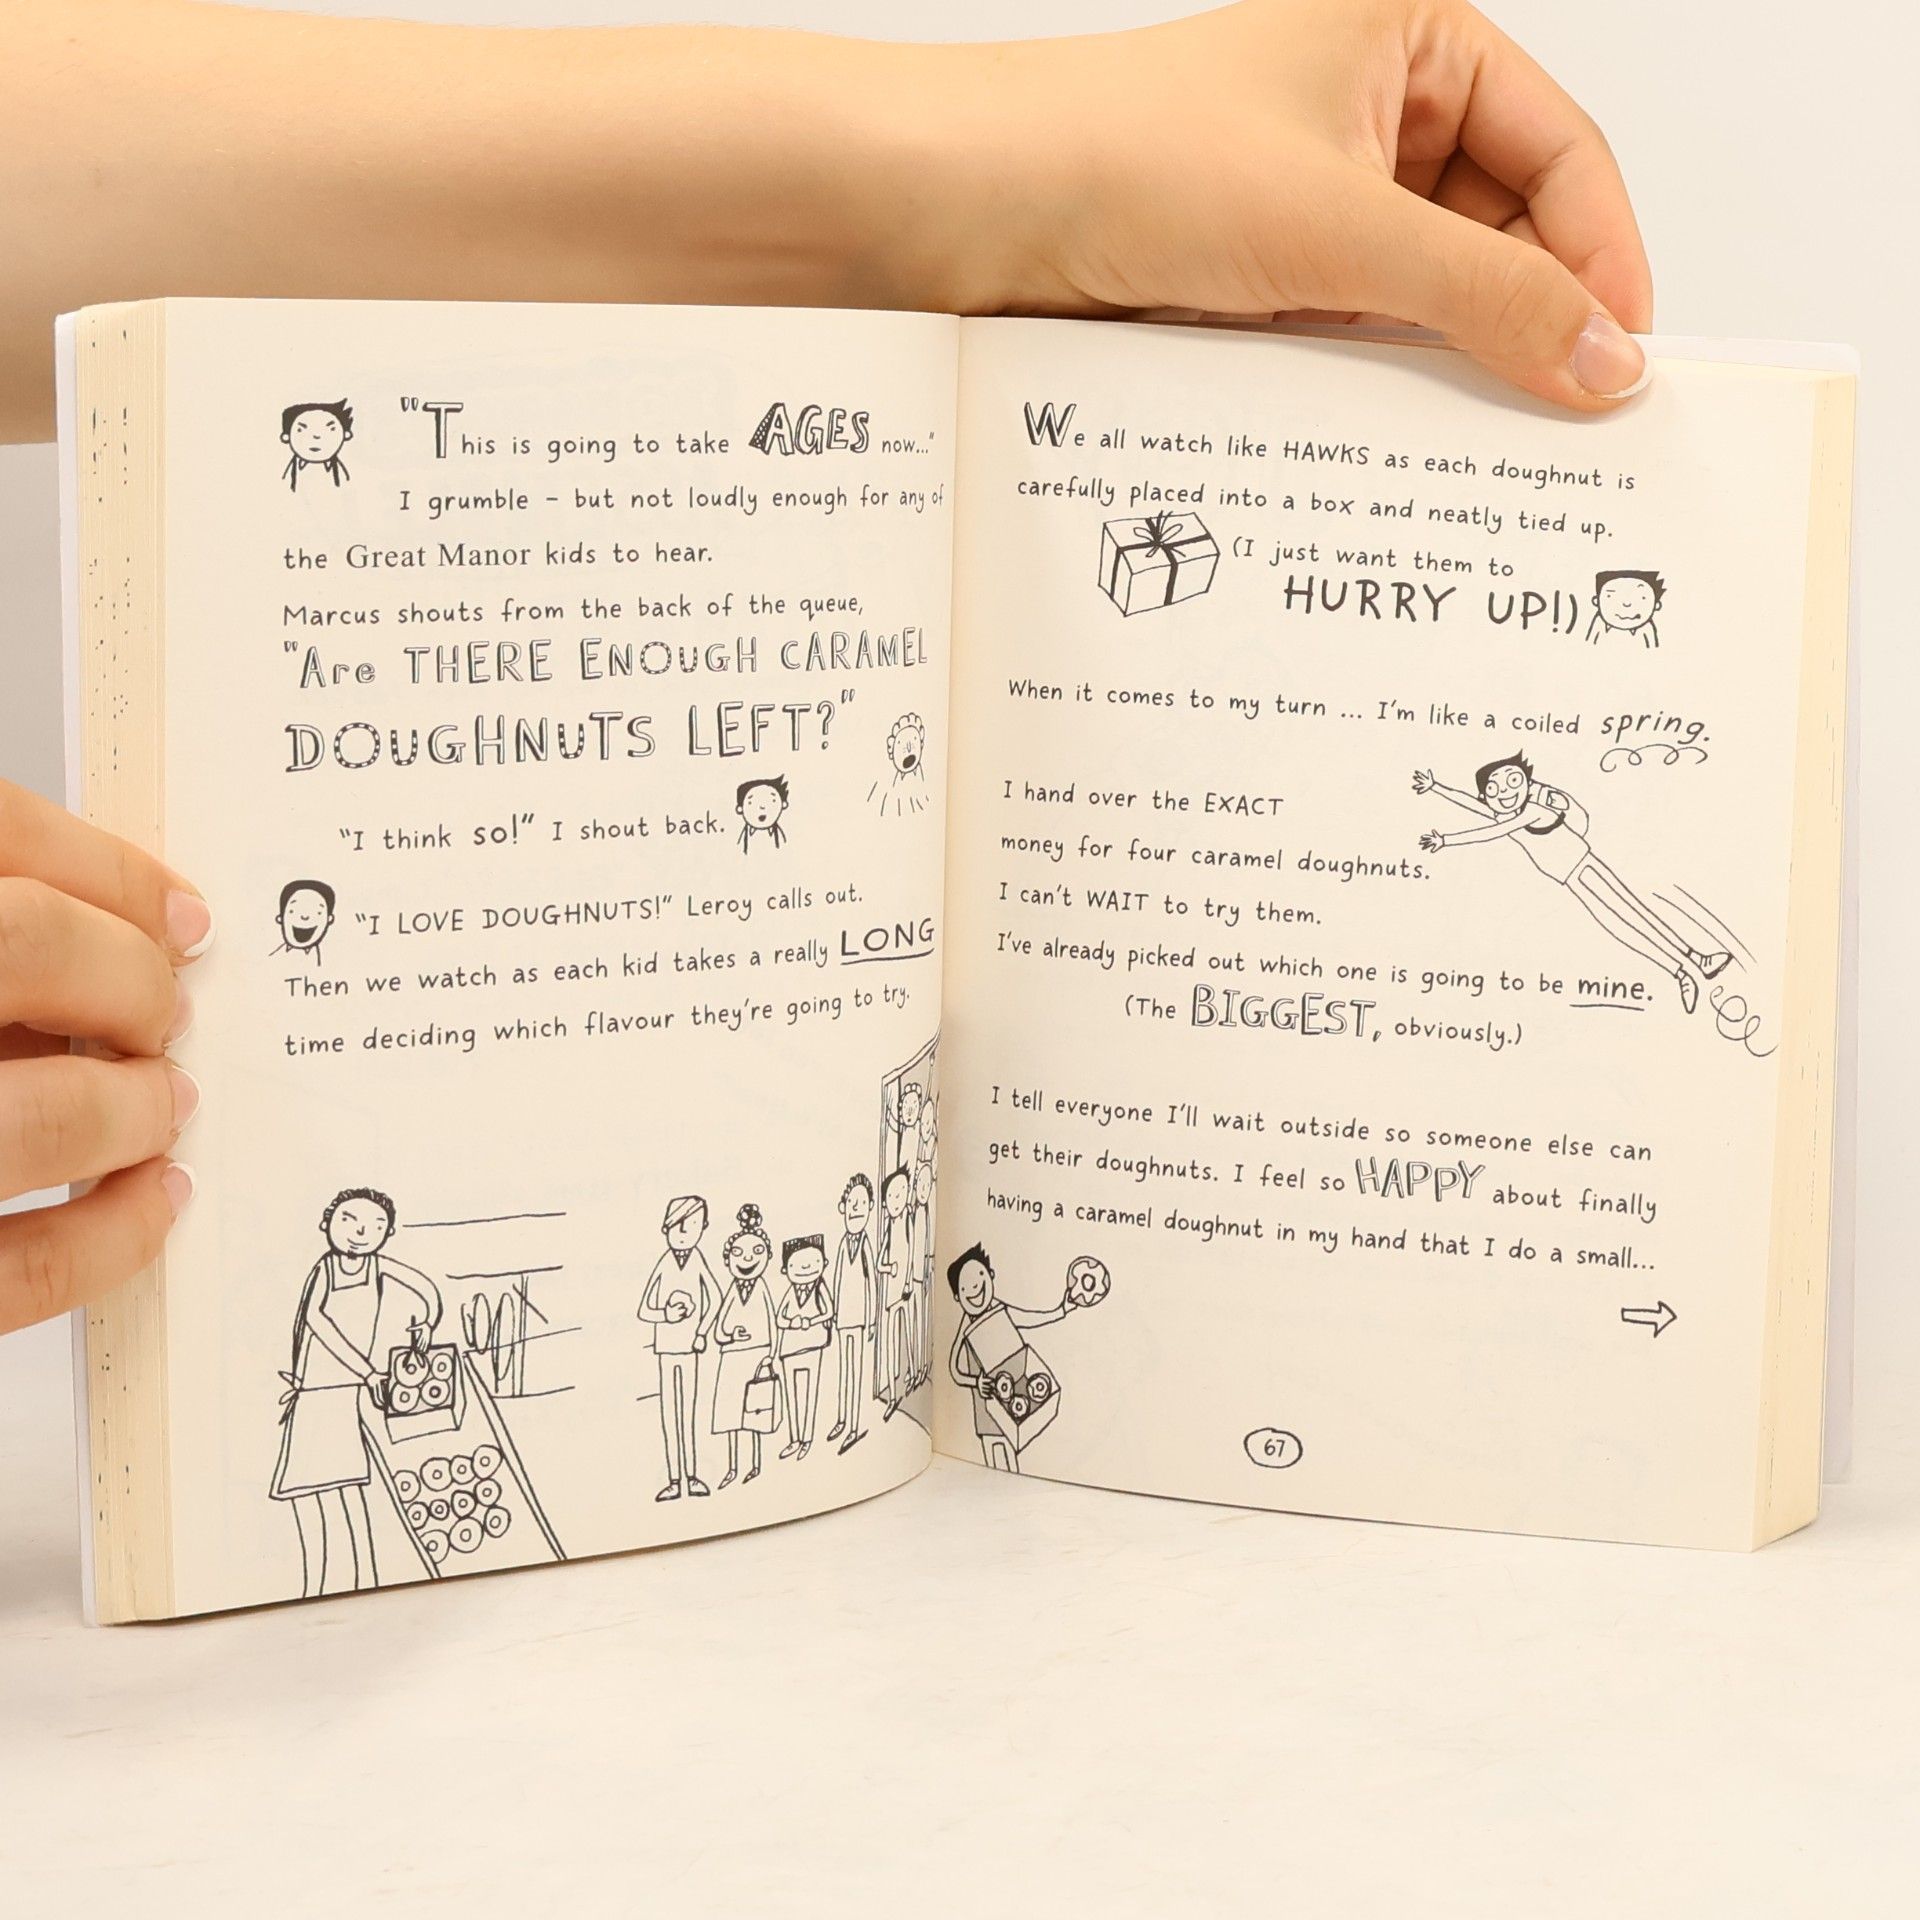 "This is going to take AGES now..."
I grumble – but not loudly enough for any of
the Great Manor kids to hear.
Marcus shouts from the back of the queue,
"Are THERE ENOUGH CARAMEL
DOUGHNUTS LEFT?"
"I think so!" I shout back.
"I LOVE DOUGHNUTS!" Leroy calls out.
Then we watch as each kid takes a really LONG
time deciding which flavour they're going to try.
We all watch like HAWKS as each doughnut is
carefully placed into a box and neatly tied up.
(I just want them to
HURRY UP!)
When it comes to my turn ... I'm like a coiled spring.
I hand over the EXACT
money for four caramel doughnuts.
I can't WAIT to try them.
I've already picked out which one is going to be mine.
(The BIGGEST, obviously.)
I tell everyone I'll wait outside so someone else can
get their doughnuts. I feel so HAPPY about finally
having a caramel doughnut in my hand that I do a small...
67